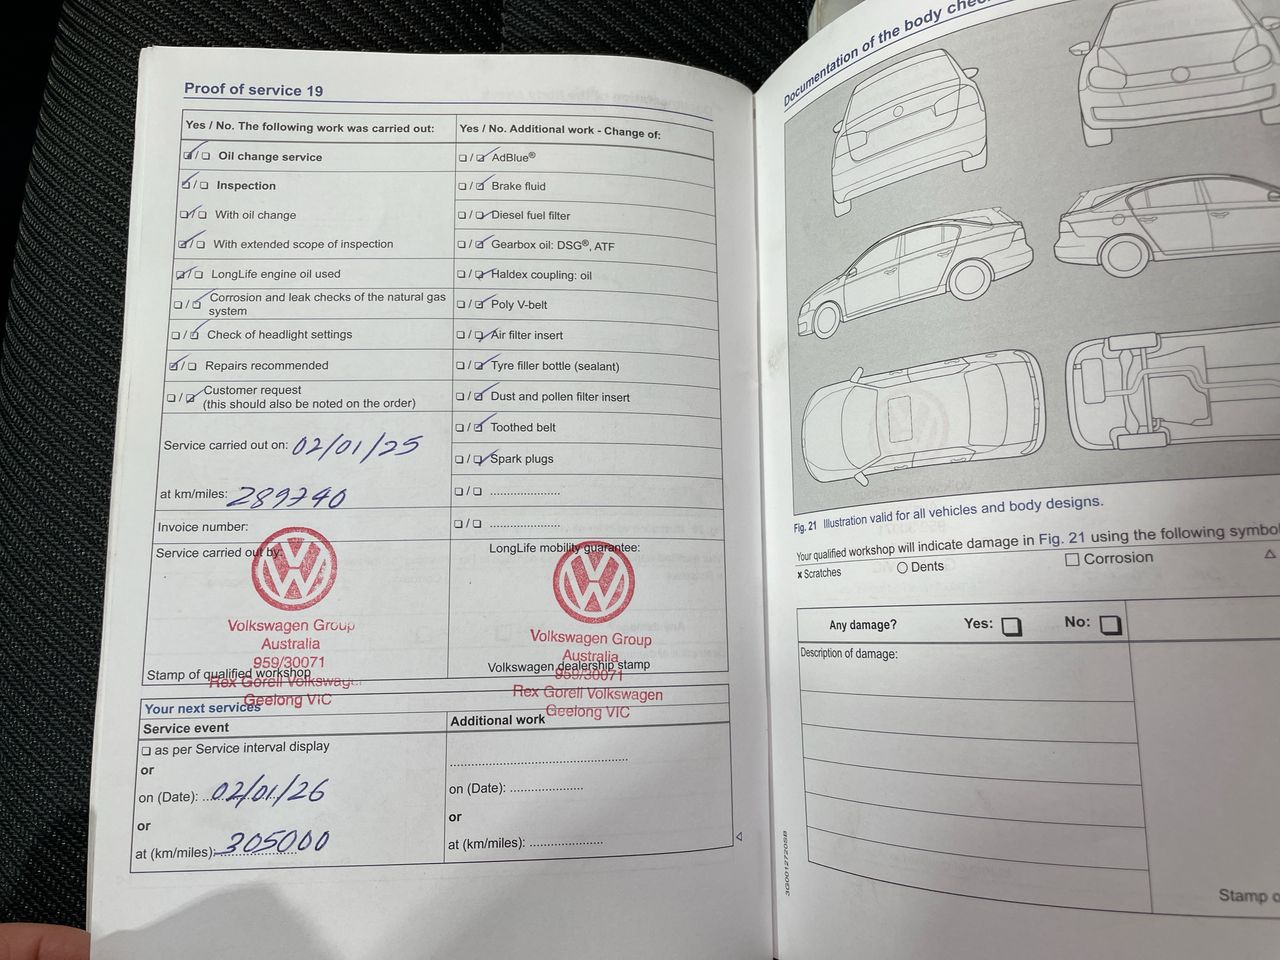 Proof of service 19
Yes / No. The following work was carried out:
Oil change service
Inspection
With oil change
With extended scope of inspection
LongLife engine oil used
Corrosion and leak checks of the natural gas
system
Check of headlight settings
Repairs recommended
Customer request
(this should also be noted on the order)
Service carried out on: 02/01/25
at km/miles: 289740
Invoice number:
Service carried out by:
Volkswagen Group
Australia
959/30071
Stamp of qualified workshop
Rex Gorell Volkswagen
Geelong VIC
Yes / No. Additional work - Change of:
AdBlue®
Brake fluid
Diesel fuel filter
Gearbox oil: DSG®, ATF
Haldex coupling: oil
Poly V-belt
Air filter insert
Tyre filler bottle (sealant)
Dust and pollen filter insert
Toothed belt
Spark plugs
LongLife mobility guarantee:
Volkswagen Group
Australia
Volkswagen dealership stamp
959/30071
Rex Gorell Volkswagen
Geelong VIC
Your next services
Service event
as per Service interval display
or
on (Date): 02/01/26
or
at (km/miles): 305000
Additional work
on (Date):
or
at (km/miles):
Documentation of the body chec
Fig. 21 Illustration valid for all vehicles and body designs.
Your qualified workshop will indicate damage in Fig. 21 using the following symbo
x Scratches
Dents
Corrosion
Any damage? Yes: No:
Description of damage:
Stamp o
3G0012720SB